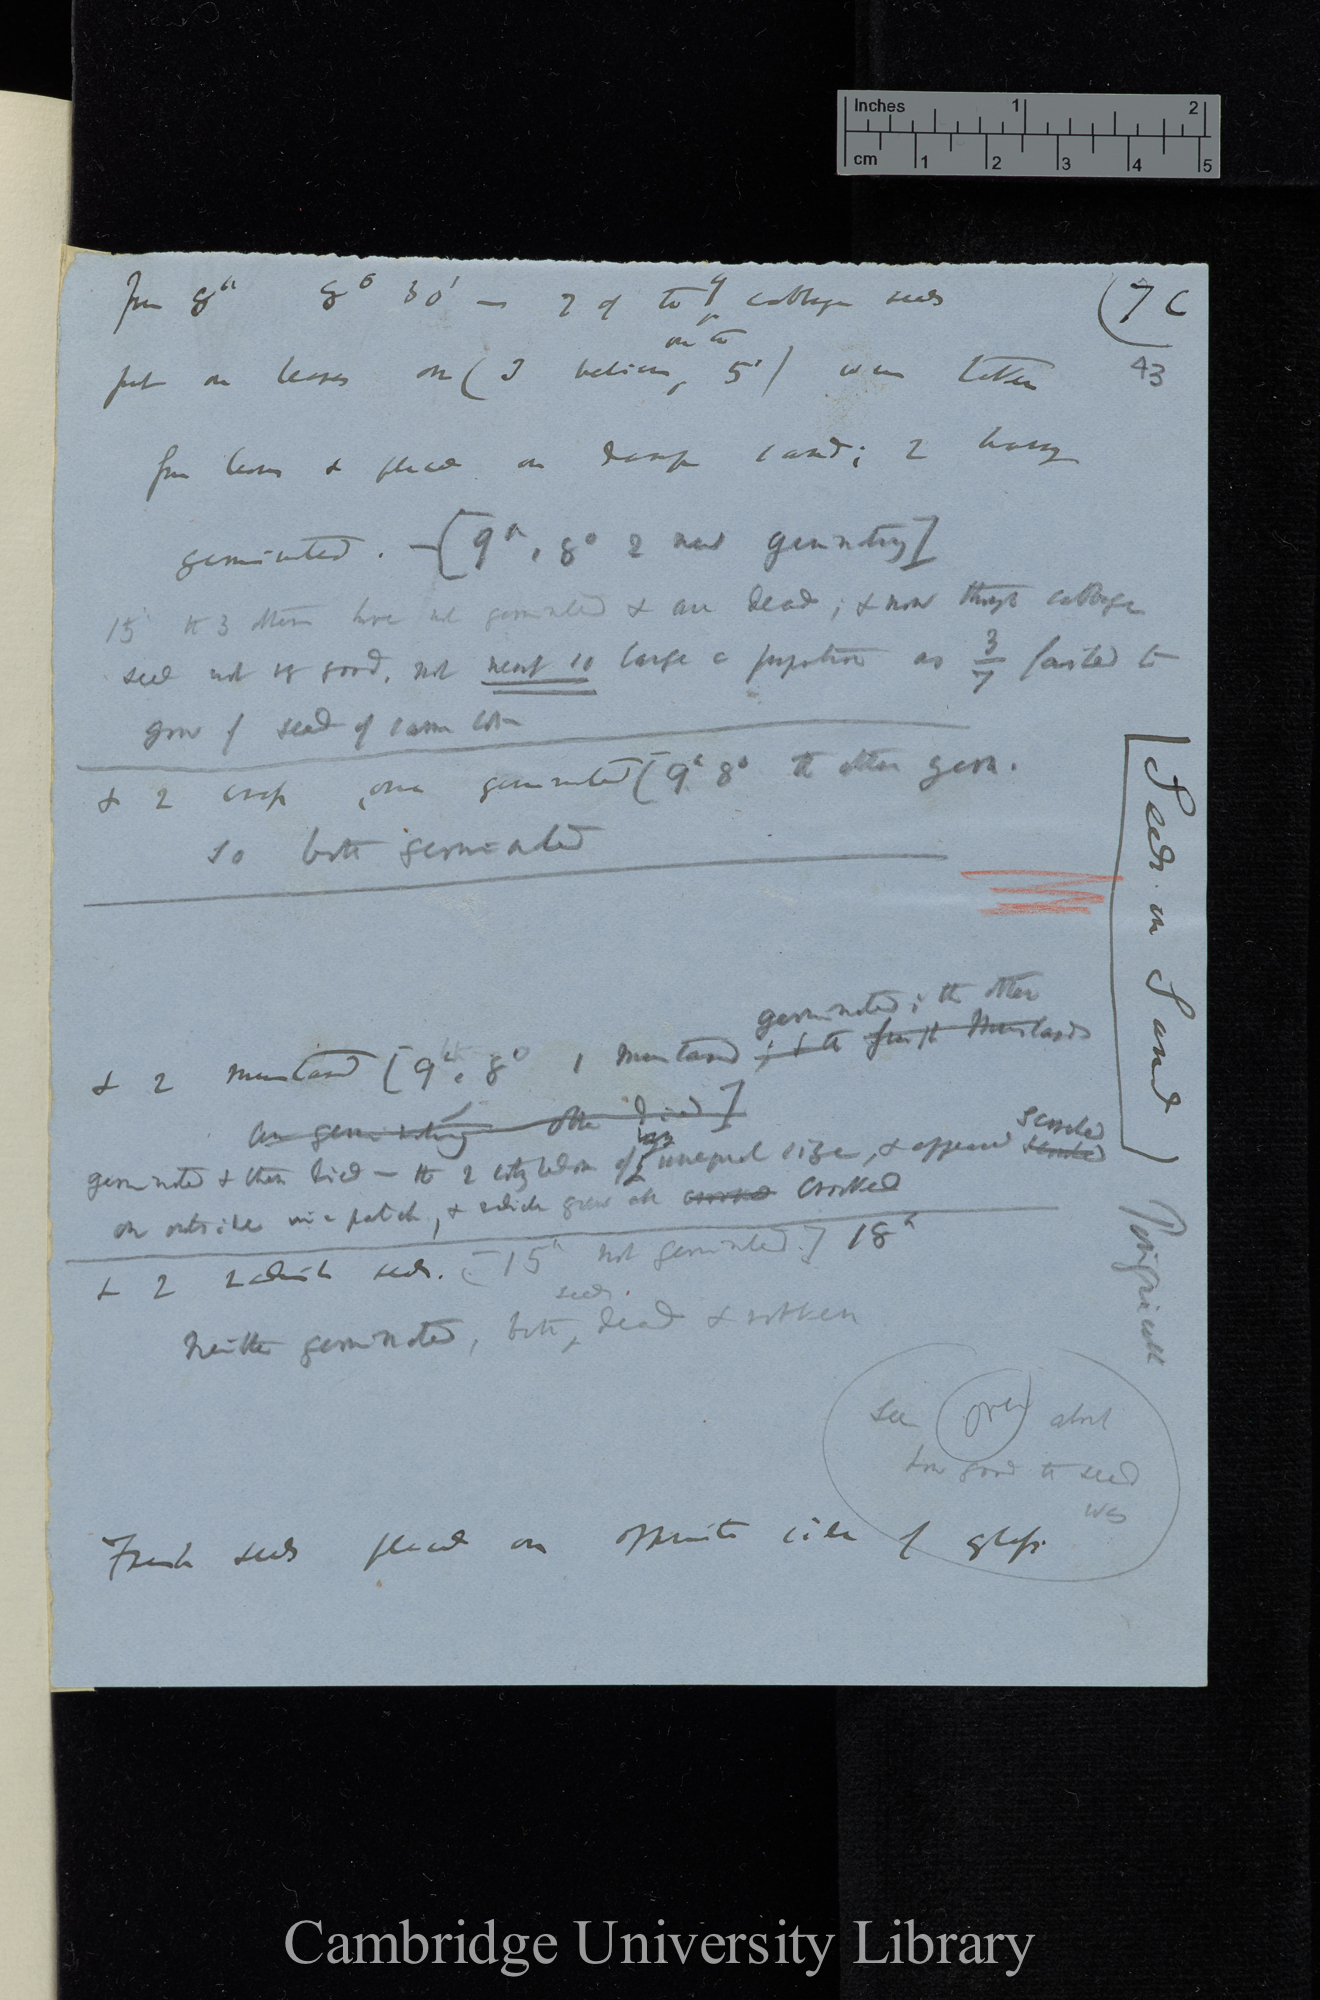 Inches 1 2
cm 1 2 3 4 5
(7 C
43
June 8th 8° 30' — 7 of the 9 cabbage seeds
put on leaves on (I believe, on the 5th) were taken
from leaves & placed on damp sand; 2 having
germinated. — [9th, 8° 2 more germinating]
15th the 3 others have not germinated & are dead; & now though cabbage
seed not v good, not near so large a proportion as 3/7 failed to
grow of seed of same lot
& 2 cress, one germinated [9th 8° the other germ.
so both germinated
[Seeds in Sand]
Pinguicula
& 2 mustard [9th, 8° 1 mustard germinated; the other
germinated & then died — the 2 cotyledons of unequal size, & appeared scorched
on outside in a patch, & which grew all crooked crooked
& 2 radish seeds. [15th not germinated.] 18th
Neither germinated, both seeds dead & rotten
See over about
how good the seed
was
Fresh seeds placed on opposite side of glass.
Cambridge University Library